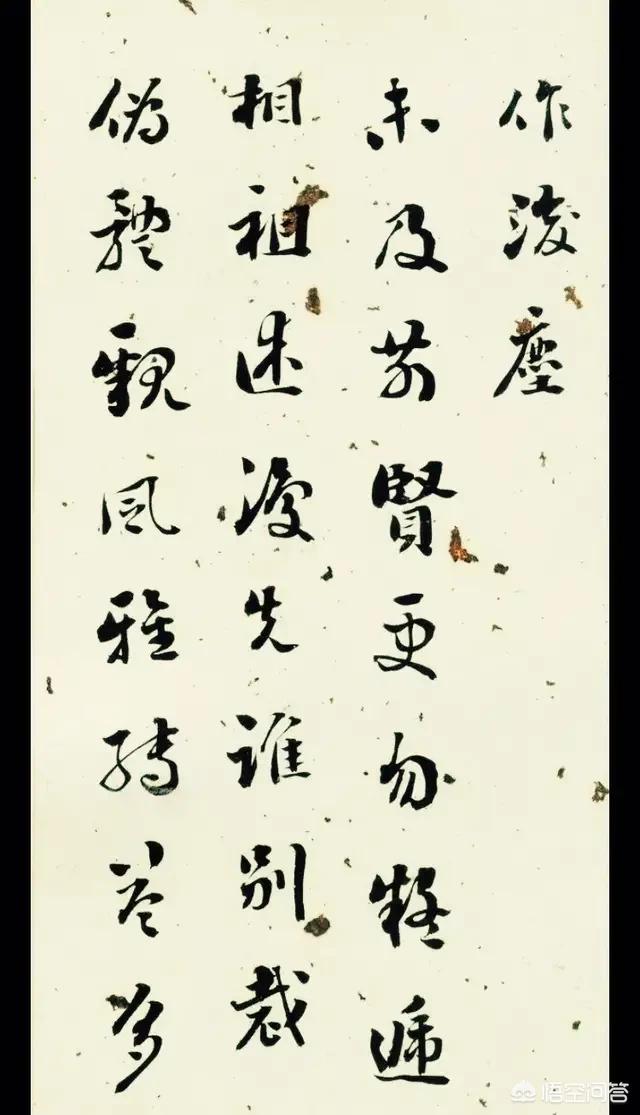 作後塵
未及前賢更勿疑遞
相祖述復先誰別裁
偽體親風雅轉益多
悟空问答